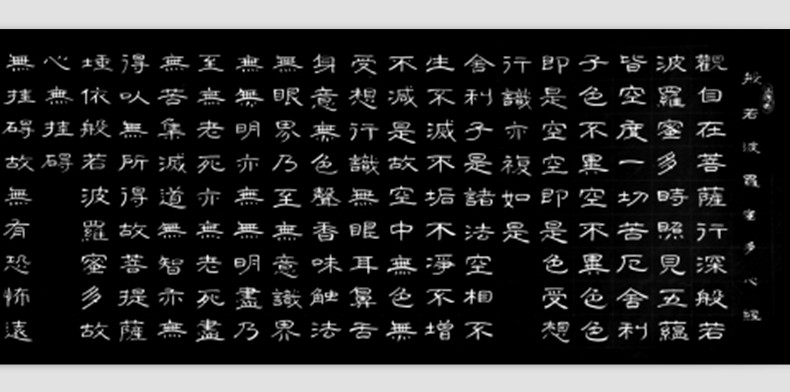 般若波羅蜜多心經
觀自在菩薩行深般若
波羅蜜多時照見五蘊
皆空度一切苦厄舍利
子色不異空不異色色
即是空空即是色受想
行識亦複如是
舍利子是諸法空相不
生不滅不垢不淨不增
不減是故空中無色無
受想行識無眼耳鼻舌
身意無色聲香味触法
無眼界乃至無意識界
無無明亦無無明盡乃
至無老死亦無老死盡
無苦集滅道無智亦無
得以無所得故菩提薩
埵依般若波羅蜜多故
心無挂碍
無挂碍故無有恐怖遠